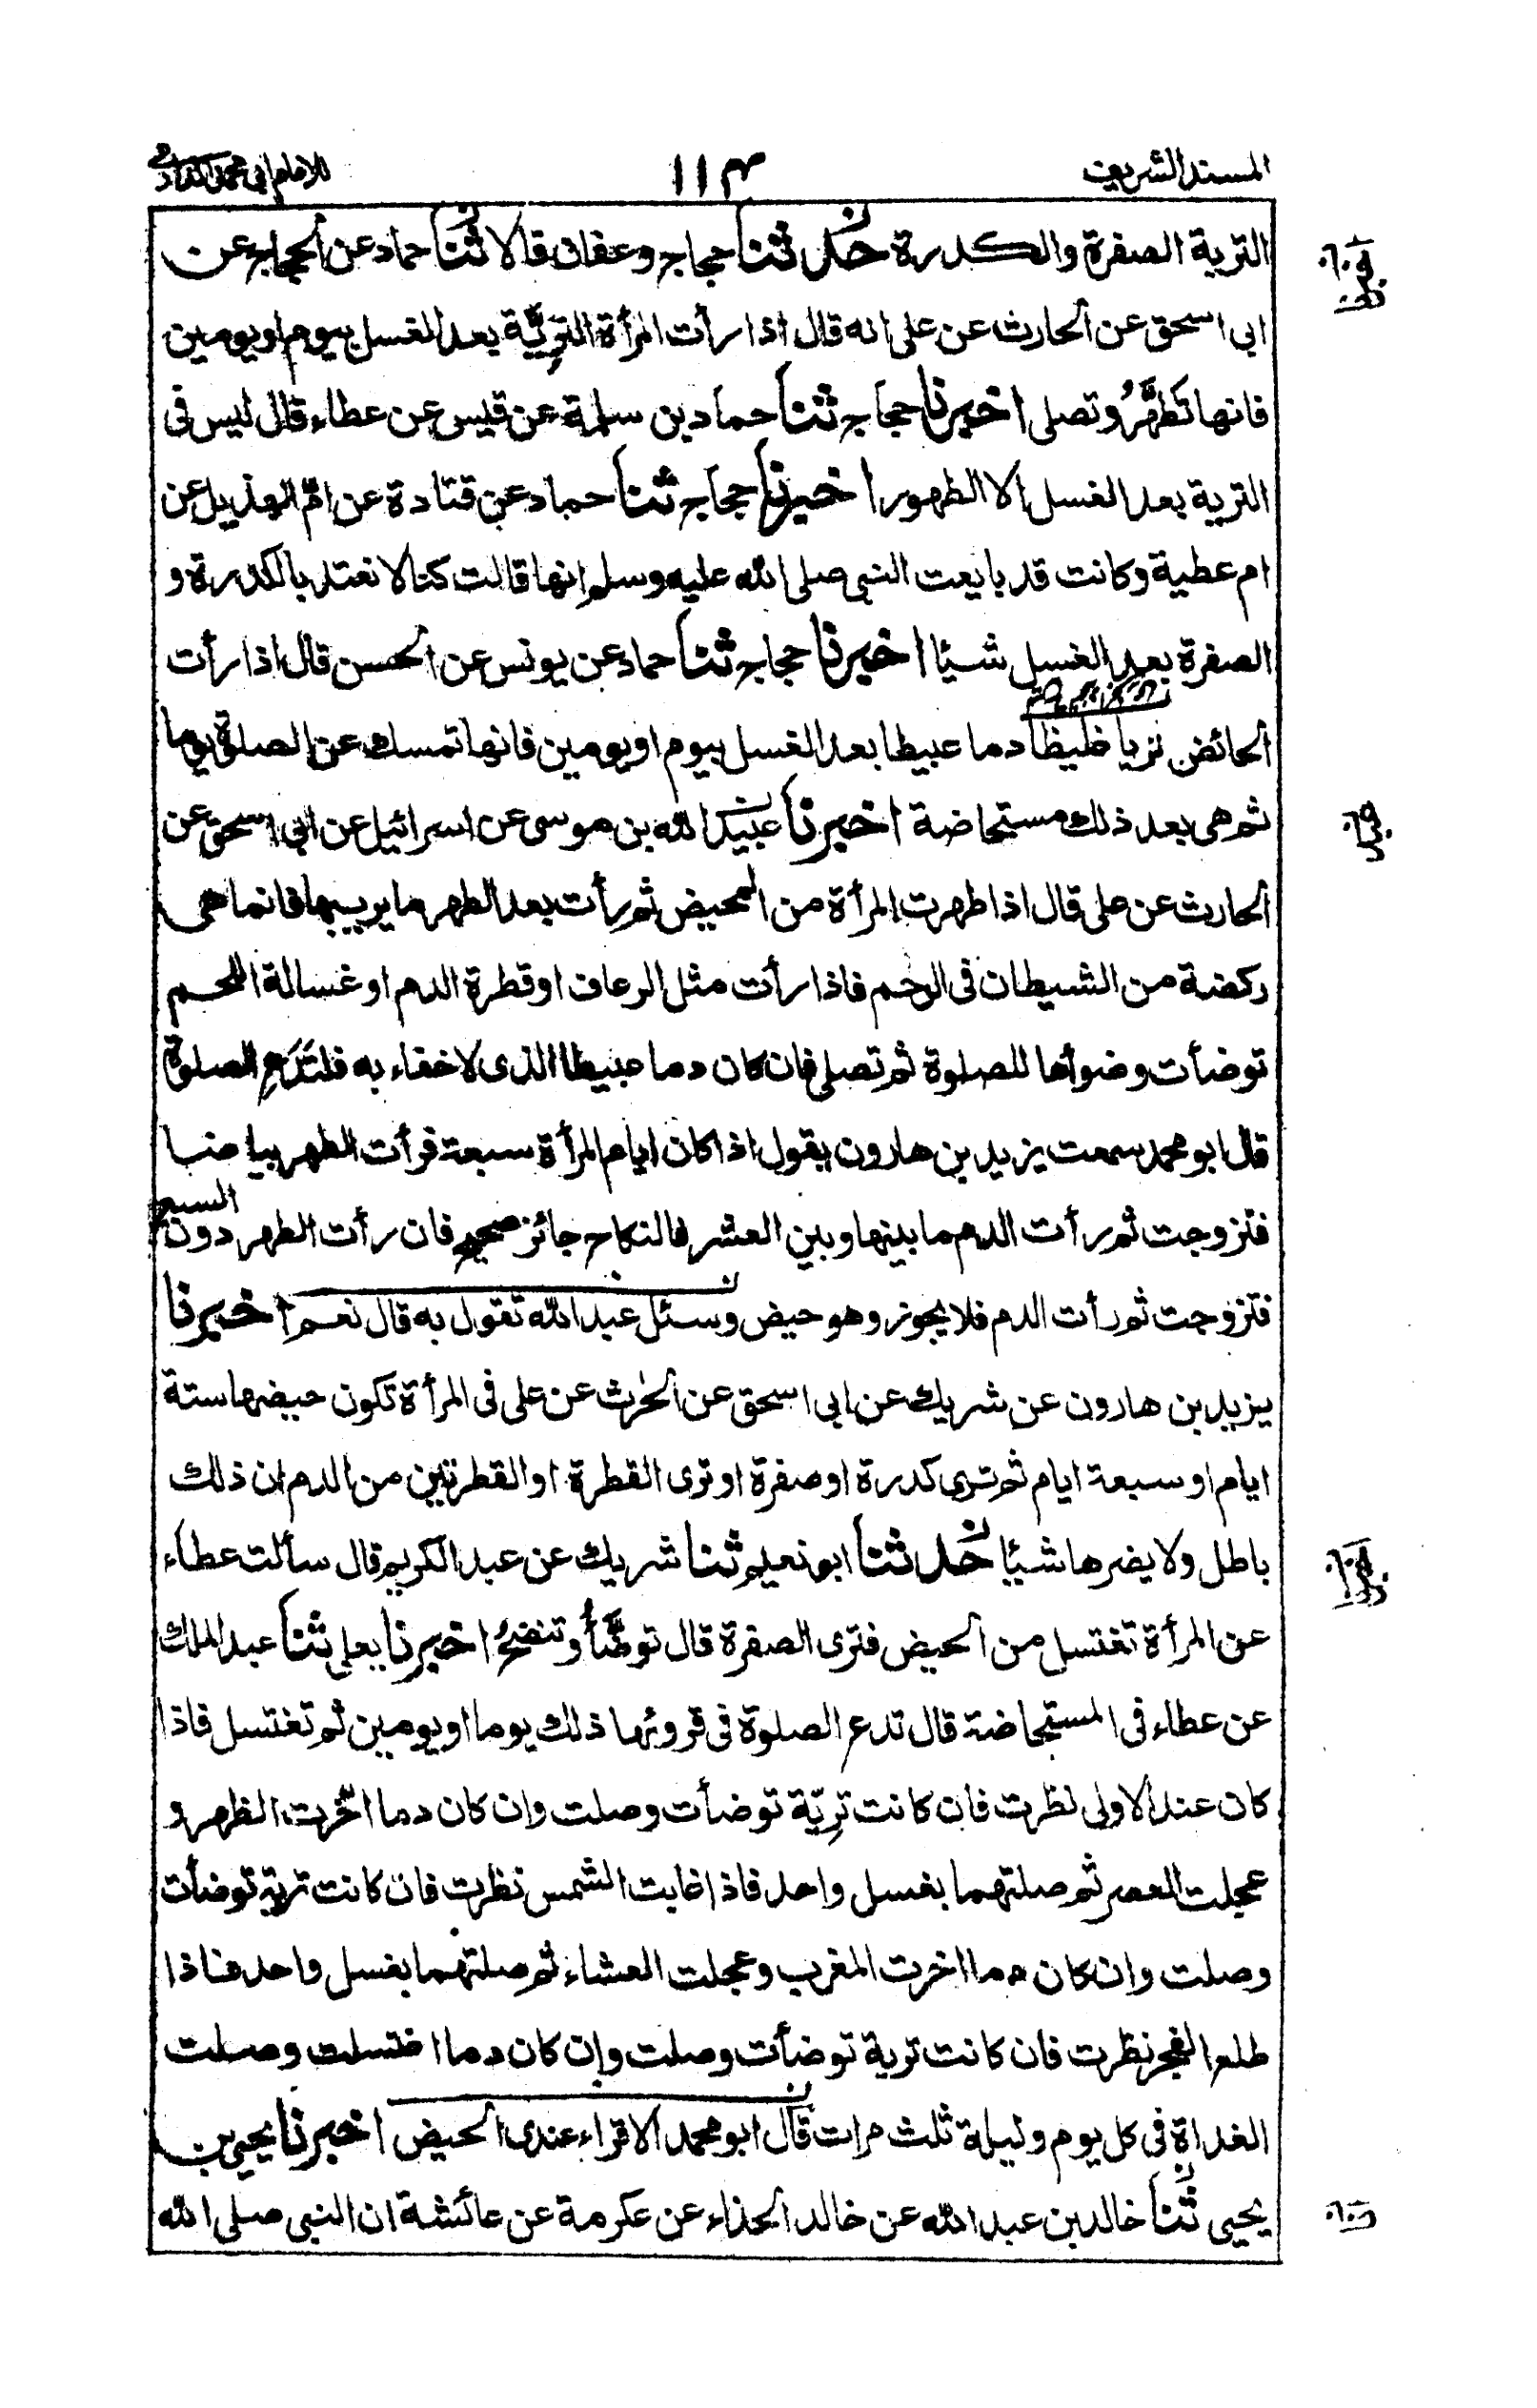 المسند الشريف
١١٣
للامام ابى محمد الدارمى
التربة الصفرة والكدرة حدثنا حجاج وعفان قالا ثنا حماد عن الحجاج عن
ابى اسحق عن الحارث عن على انه قال اذا رأت المرأة التَرِيَّة بعد الغسل بيوم او يومين
فانها تَطَهَّرُ وتصلى اخبرنا حجاج ثنا حماد بن سلمة عن قيس عن عطاء قال ليس فى
التربة بعد الغسل الا الطهور اخبرنا حجاج ثنا حماد عن قتادة عن امّ الهذيل عن
ام عطية وكانت قد بايعت النبى صلى الله عليه وسلم انها قالت كنا لا نعتد بالكدرة و
الصفرة بعد الغسل شيئا اخبرنا حجاج ثنا حماد عن يونس عن الحسن قال اذا رأت
الحائض تريا غليظا دما عبيطا بعد الغسل بيوم او يومين فانها تمسك عن الصلوة يوما
ثم هى بعد ذلك مستحاضة اخبرنا عبيد الله بن موسى عن اسرائيل عن ابى اسحق عن
الحارث عن على قال اذا طهرت المرأة من المحيض ثم رأت بعد الطهر ما يريبها فانما هى
ركضة من الشيطان فى الرحم فاذا رأت مثل الرعاف او قطرة الدم او غسالة اللحم
توضأت وضوأها للصلوة ثم تصلى فان كان دما عبيطا الذى لا خفاء به فلتَدَعِ الصلوة
قال ابو محمد سمعت يزيد بن هارون يقول اذا كان ايام المرأة سبعة فرأت الطهر بياضا
فتزوجت ثم رأت الدم ما بينها وبين العشر فالنكاح جائز صحيح فان رأت الطهر دون السبع
فتزوجت ثم رأت الدم فلا يجوز وهو حيض وسئل عبد الله تقول به قال نعم اخبرنا
يزيد بن هارون عن شريك عن ابى اسحق عن الحٰرث عن على فى المرأة تكون حيضها ستة
ايام او سبعة ايام ثم ترى كدرة او صفرة او ترى القطرة او القطرتين من الدم ان ذلك
باطل ولا يضرها شيئا حدثنا ابو نعيم ثنا شريك عن عبد الكريم قال سألت عطاء
عن المرأة تغتسل من الحيض فترى الصفرة قال توضَّأُ وتنضحُ اخبرنا يعلى ثنا عبد الملك
عن عطاء فى المستحاضة قال تدع الصلوة فى قروئها ذلك يوما او يومين ثم تغتسل فاذا
كان عند الاولى نظرت فان كانت تَرِيّة توضأت وصلت وان كان دما اخّرت الظهر و
عجلت العصر ثم صلتهما بغسل واحد فاذا غابت الشمس نظرت فان كانت ترية توضأت
وصلت وان كان دما اخرت المغرب وعجلت العشاء ثم صلتهما بغسل واحد فاذا
طلع الفجر نظرت فان كانت ترية توضأت وصلت وان كان دما اغتسلت وصلت
الغداة فى كل يوم وليلة ثلث مرات قال ابو محمد الاقراء عندى الحيض اخبرنا يحيى بن
يحيى ثنا خالد بن عبد الله عن خالد الحذاء عن عكرمة عن عائشة ان النبى صلى الله